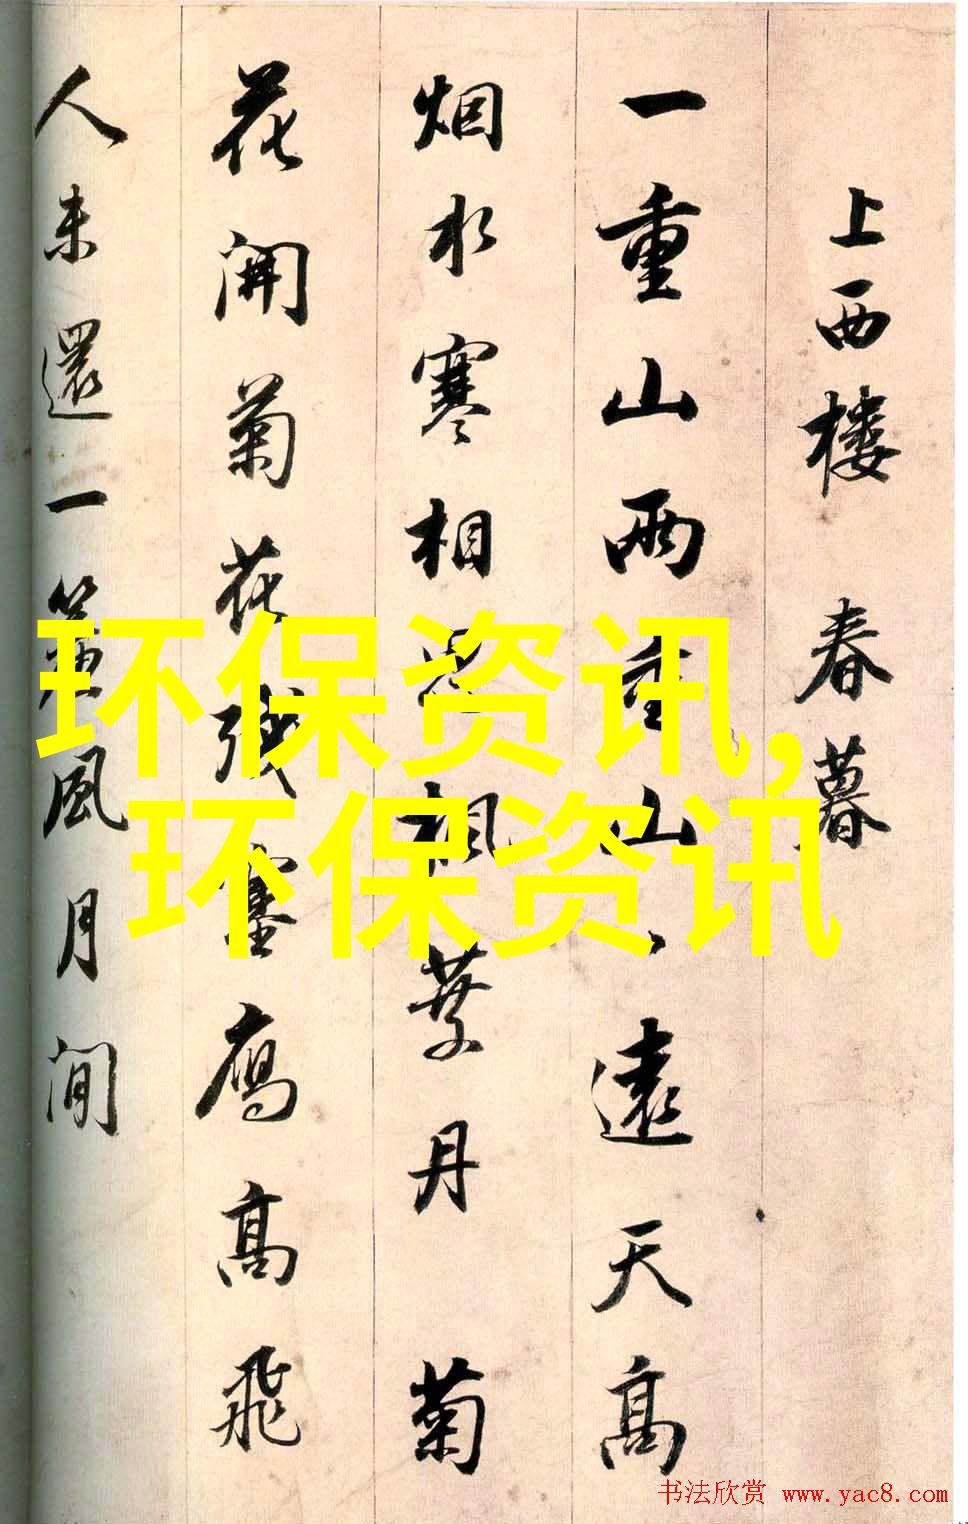 上西楼 春暮
一重山兩重山、遠天高
烟水寒相思楓葉丹 菊
花開菊花殘塞鴈高飛
人未還一簾風月閒
环保资讯,
环保资讯
书法欣赏 www.yac8.com